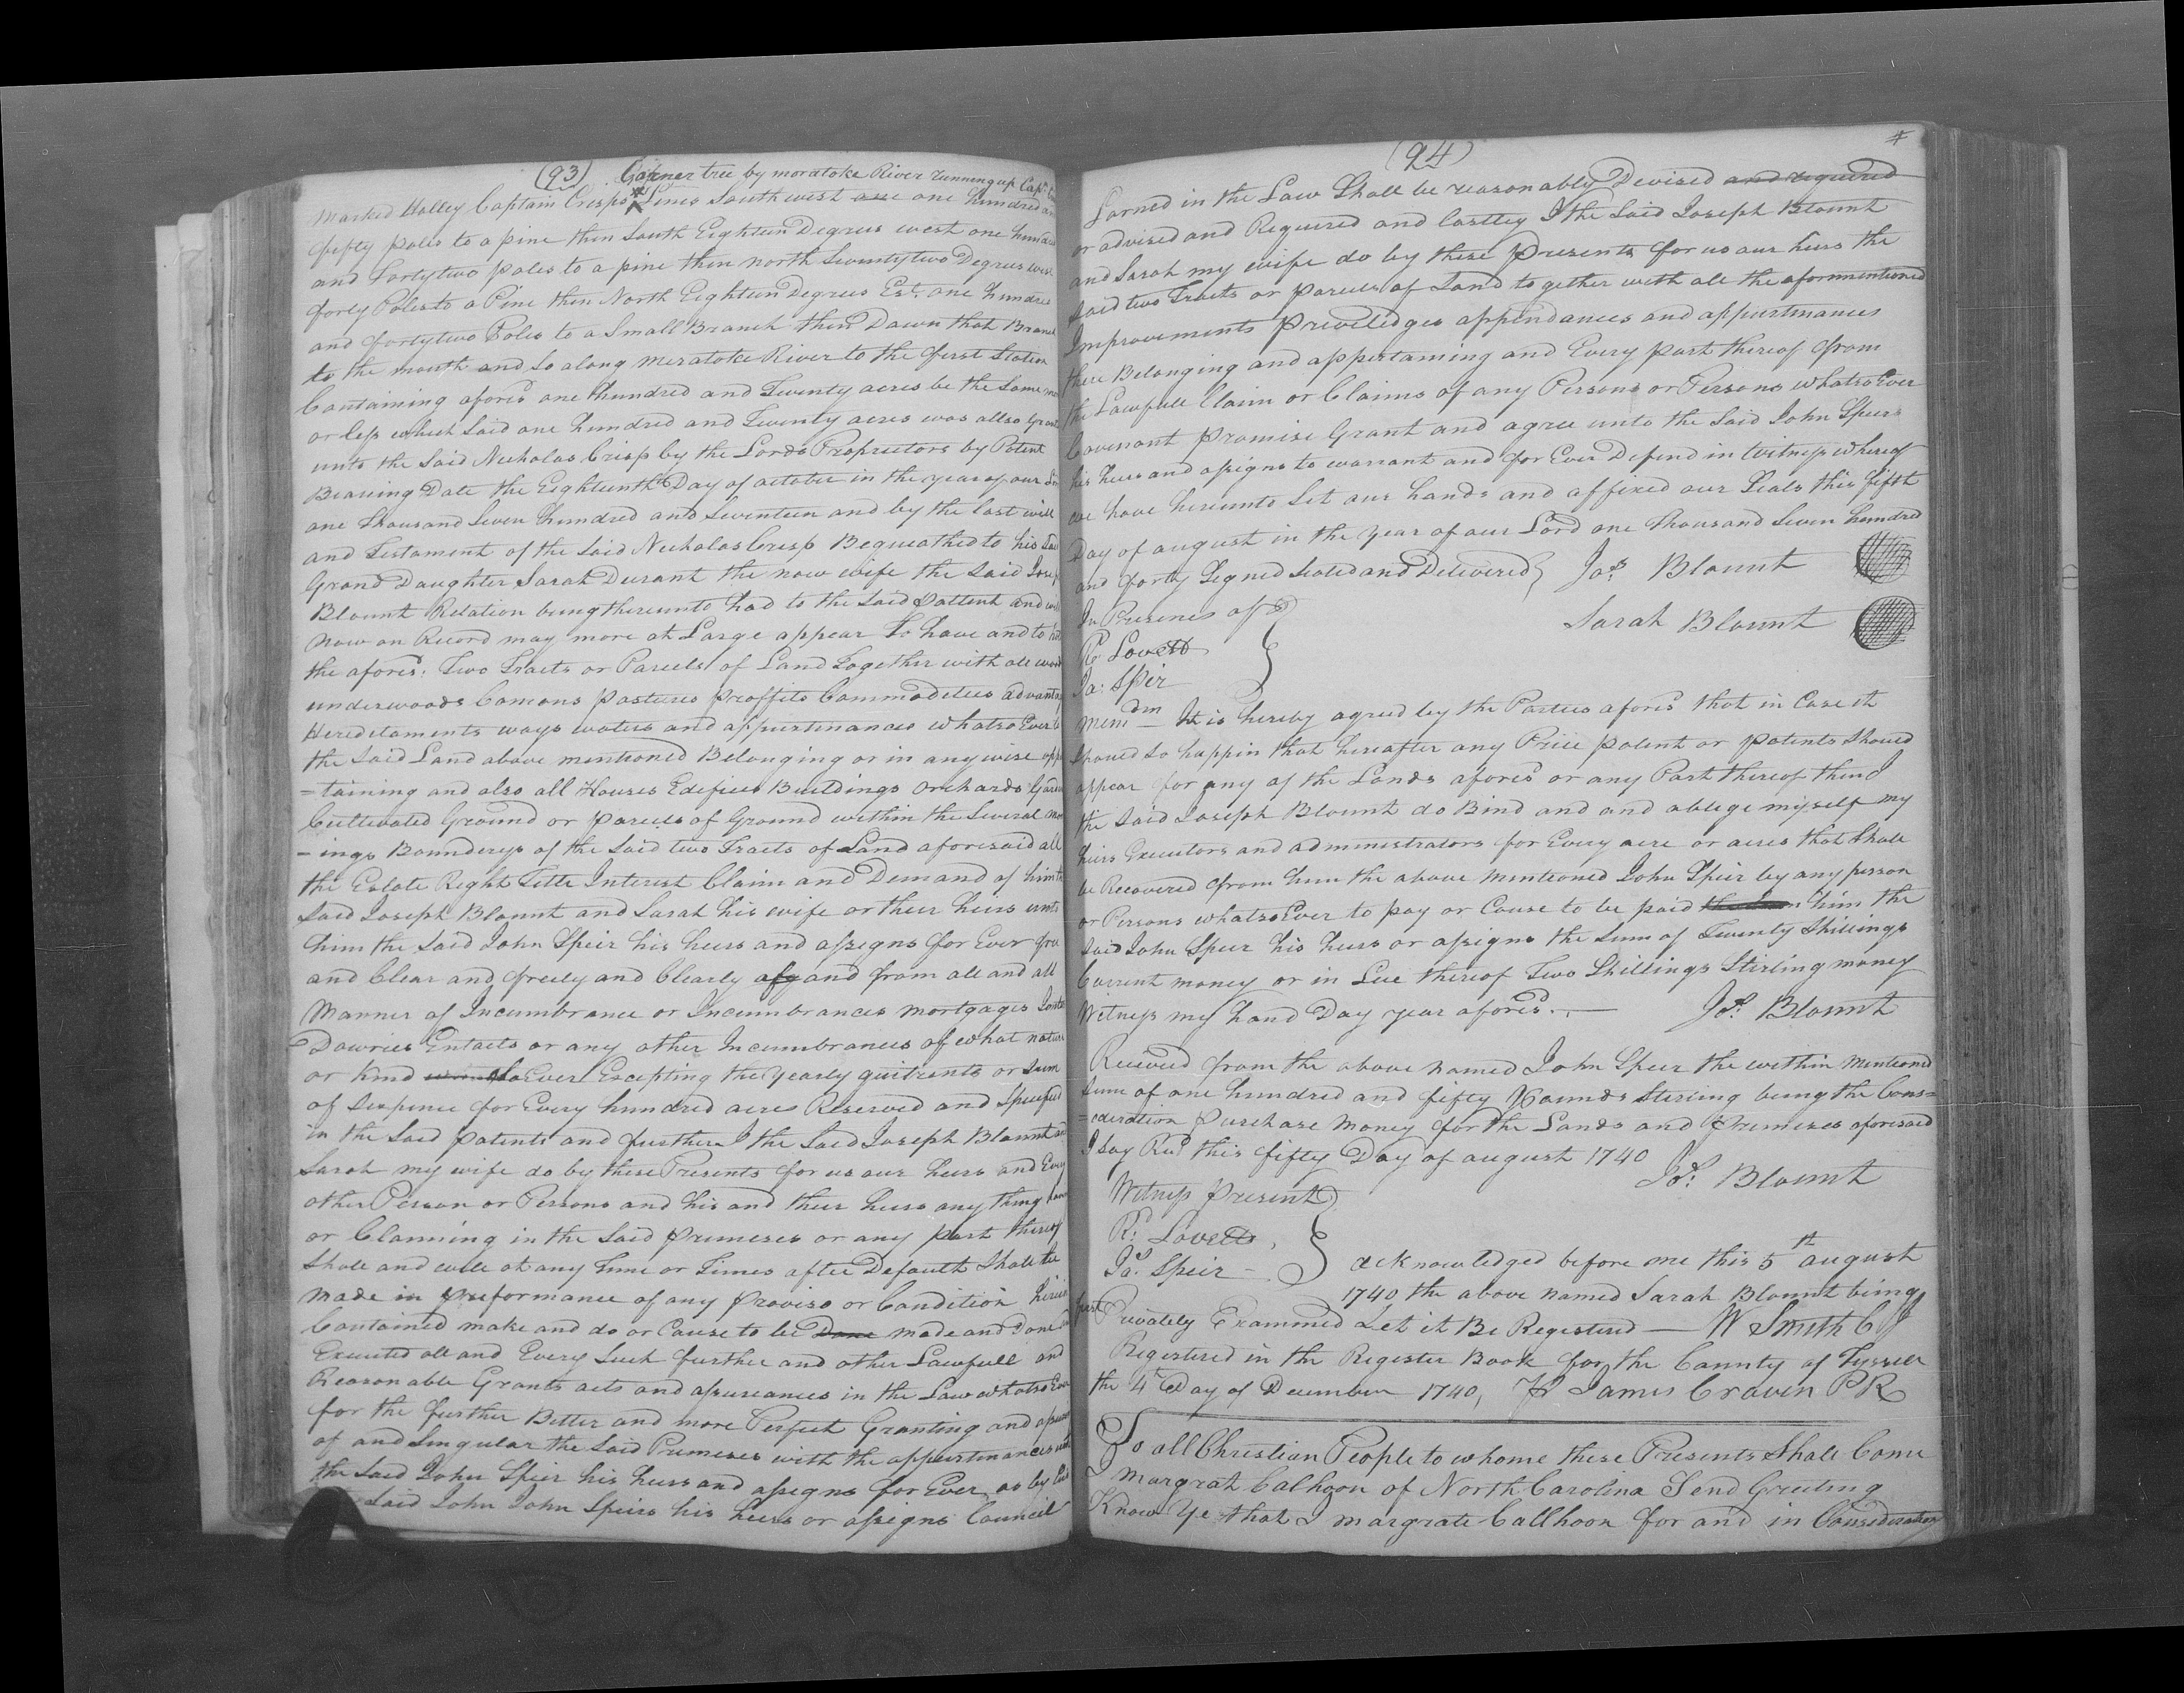 (93) Corner tree by moratoke River running up Capn
marked Holley Captain Crisps Lines Southwest are one hundred and
fifty poles to a pine then South Eighteen Degrees west one hundred
and Fortytwo poles to a pine then north Seventytwo Degrees west
forty Poles to a Pine then North Eighteen Degrees Est. one hundred
and fortytwo Poles to a Small Branch then Down that Branch
to the mouth and So along moratoke River to the first Station
Containing afores one hundred and Twenty acres be the Same more
or less which Said one hundred and Twenty acres was allso Granted
unto the Said Nicholas Crisp by the Lords Proprietors by Patent
Bearing Date the Eighteenth Day of octobr in the year of our
one thousand Seven hundred and Seventeen and by the last will
and Testament of the Said Nicholas Crisp Bequeathed to his
Grand Daughter Sarah Durant the now wife the Said Joseph
Blount Relation being thereunto had to the Said pattent and will
now on Record may more at Large appear To have and to
the afores: Two Tracts or Parcels of Land Together with all wood
underwoods Comons pastures proffits Commodities advantages
Hereditaments ways waters and appurtinances whatsoEver
the Said Land above mentioned Belonging or in anywise
=taining and also all Houses Edifices Buildings orchards
Cultivated Ground or parcels of Ground within the Several
-ings Bounderys of the Said two Tracts of Land aforesaid all
the Estate Right Title Interest Claim and Demand of him the
Said Joseph Blount and Sarah his wife or their heirs unto
him the Said John Speir his heirs and assigns for Ever free
and Clear and freely and Clearly and from all and all
Manner of Incumbrance or Incumbrances mortgages
Dowries Entails or any other Incumbrances of what nature
or kind soEver Excepting the yearly quitrents or Sum
of Sixpence for Every hundred acres Reserved and Specified
in the Said patents and further I the Said Joseph Blount and
Sarah my wife do by these Presents for us our heirs and Every
other Person or Persons and his and their heirs any thing
or Claiming in the Said premeses or any part thereof
Shall and will at any Time or Times after Default Shall be
made in preformance of any proviso or Condition herein
Contained make and do or Cause to be Done made and Done
Executed all and Every Such further and other Lawfull and
Reasonable Grants acts and assureances in the Law whatsoEver
for the further Better and more Perfect Granting and
of and Singular the Said Premeses with the appurtinances
the Said John Speir his heirs and assigns for Ever as by
Said John John Speirs his heirs or assigns Council
(94)
Larned in the Law Shall be reasonably Devised and required
or advised and Required and lastley I the Said Joseph Blount
and Sarah my wife do by these presents for us our heirs the
Said two Tracts or parcels of Land together with all the aformentioned
Improvements priviledges appendances and appurtinances
there Belonging and appertaining and Every part thereof from
the Lawfull Claim or Claims of any Persons or Persons whatsoEver
Covenant promise Grant and agree unto the Said John Speir
his heirs and assigns to warrant and for Ever Defend in witness whereof
we have hereunto Set our hands and affixed our Seals this fifth
Day of august in the year of our Lord one thousand Seven hundred
and forty Segned Sealed and Delivered } Jos. Blount
In Presenes of Sarah Blount
R. Lovett
Ja: Spir
Memdm It is hereby agreed by the Parties afores that in Case it
Should So happin that hereafter any Price patent or patents Should
appear for any of the Lands afores or any Part thereof then I
the Said Joseph Blount do Bind and and oblege myself my
heirs Executors and administrators for Every acre or acres that Shall
be Recovered from him the above mentioned John Speir by any person
or Persons whatsoEver to pay or Cause to be paid him the
Said John Speir his heirs or assigns the Sum of Twenty Shillings
Current money or in Lue thereof Two Shillings Stirling money
Witness my hand Day year afores. — Jos. Blount
Received from the above named John Speir the within mentioned
Sum of one hundred and fifty Pounds Sterling being the Cons=
=ederation purchase money for the Lands and Premeses aforesaid
I Say Recd this fifty Day of august 1740
Jos: Blount
Witness present
Rd. Lovett,
Jas. Speir - } acknowledged before me this 5th august
1740 the above named Sarah Blount being
first Privately Examined Let it Be Registered — W Smith CJ
Registered in the Register Book for the County of Tyrrell
the 4th Day of December 1740, Pr James Craven PR
To all Christian People to whome these Presents Shall Come
margrat Calhoon of North Carolina Send Greeting
Know Ye that I margrate Callhoon for and in Consideration